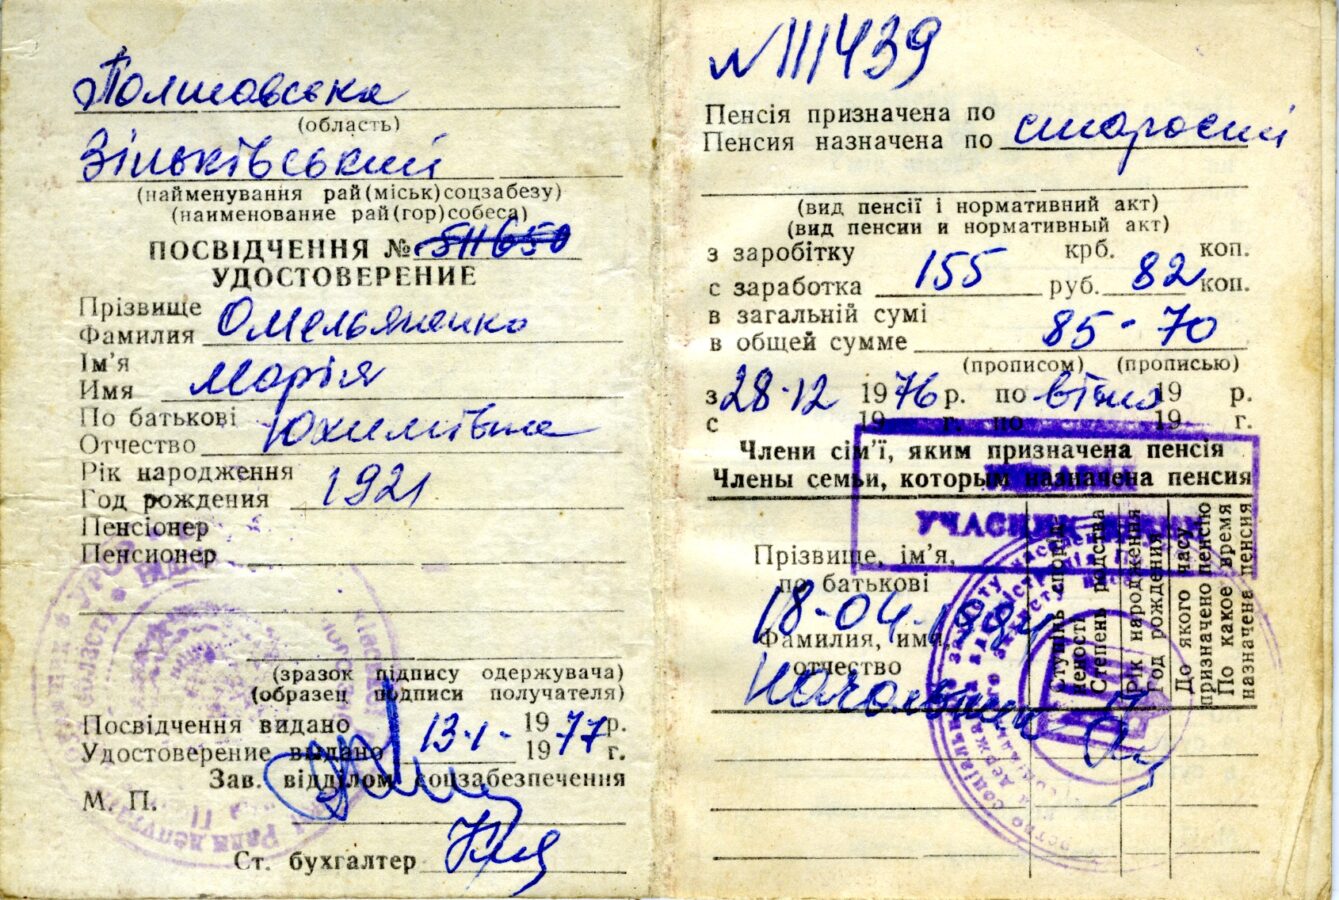 Полтавська
(область)
Зіньківський
(найменування рай(міськ)соцзабезу)
(наименование рай(гор)собеса)
ПОСВІДЧЕННЯ № 511650
УДОСТОВЕРЕНИЕ
Прізвище
Фамилия Омельяненко
Ім'я
Имя Марія
По батькові
Отчество Юхимівна
Рік народження
Год рождения 1921
Пенсіонер
Пенсионер
(зразок підпису одержувача)
(образец подписи получателя)
Посвідчення видано 13·1· 1977р.
Удостоверение выдано 19 г.
Зав. відділом соцзабезпечення
М. П.
Ст. бухгалтер
№111439
Пенсія призначена по
Пенсия назначена по старости
(вид пенсії і нормативний акт)
(вид пенсии и нормативный акт)
з заробітку крб. коп.
с заработка 155 руб. 82 коп.
в загальній сумі
в общей сумме 85-70
(прописом) (прописью)
з 28·12 1976 р. по вічно 19 р.
с 19 г. по 19 г.
Члени сім'ї, яким призначена пенсія
Члены семьи, которым назначена пенсия
УЧАСНИК ВІЙНИ
Прізвище, ім'я,
по батькові
18-04-199
Фамилия, имя,
отчество
Начальник
Ступінь спорід-
неності
Степень родства
Рік народження
Год рождения
До якого часу
призначено пенсію
По какое время
назначена пенсия